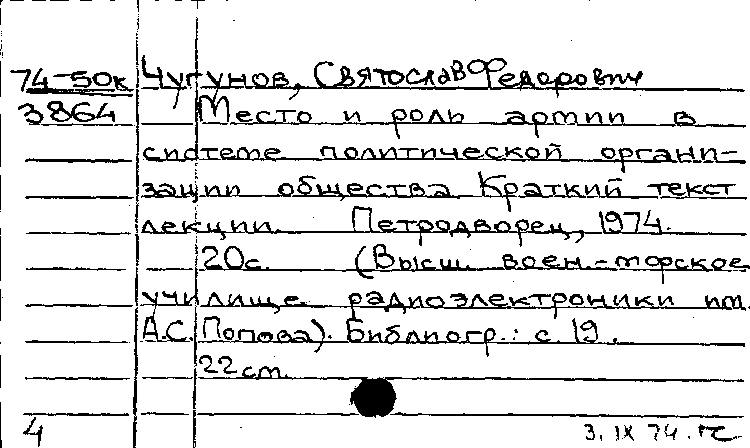 74-50к Чугунов, Святослав Федорович
3864 Место и роль армии в
системе политической органи-
зации общества Краткий текст
лекции. Петродворец, 1974.
20с. (Высш. воен.-морское
училище радиоэлектроники им.
А.С. Попова). Библиогр.: с. 19.
22 см.
4 3. IX 74.